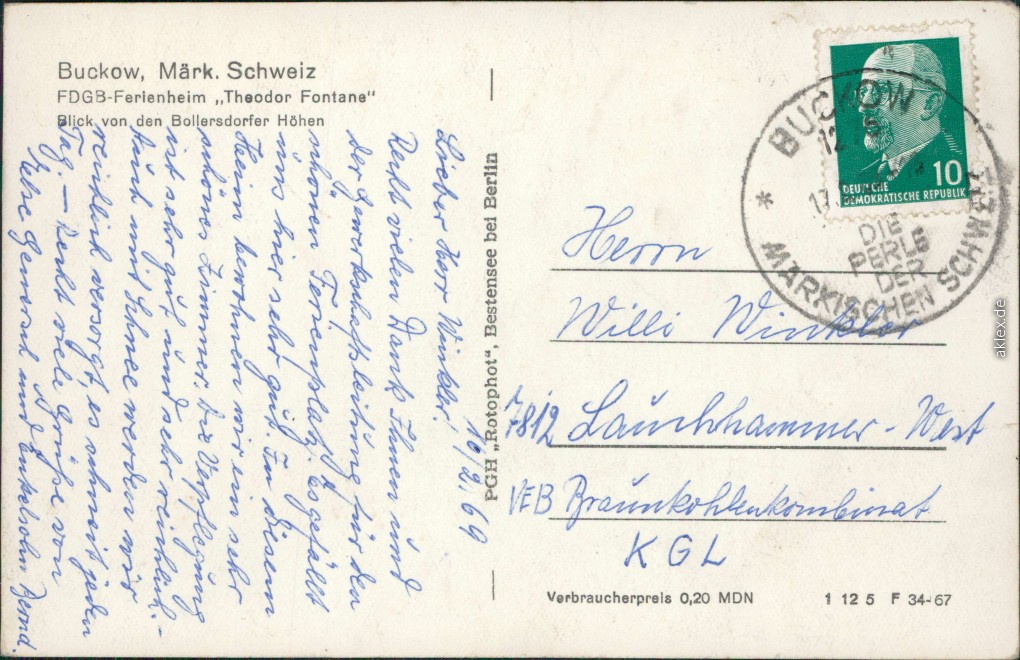 Buckow, Märk. Schweiz
FDGB-Ferienheim „Theodor Fontane"
Blick von den Bollersdorfer Höhen
16/2. 69
Lieber Herr Winkler!
Recht vielen Dank Ihnen und
der Gewerkschaftsleitung für den
schönen Ferienplatz, es gefällt
uns hier sehr gut. In diesem
Heim bewohnen wir ein sehr
schönes Zimmer. Die Verpflegung
ist sehr gut und sehr reichlich. -
Auch mit Schnee werden wir
reichlich versorgt, es schneit jeden
Tag. - Recht viele Grüße von
Else und Enkelsohn Bernd.
PGH „Rotophot", Bestensee bei Berlin
10
DEUTSCHE
DEMOKRATISCHE REPUBLIK
BUCKOW
DIE
PERLE
DER
MÄRKISCHEN SCHWEIZ
Herrn
Willi Winkler
7812 Lauchhammer-West
VEB Braunkohlenkombinat
KGL
Verbraucherpreis 0,20 MDN
1 12 5 F 34-67
aklex.de